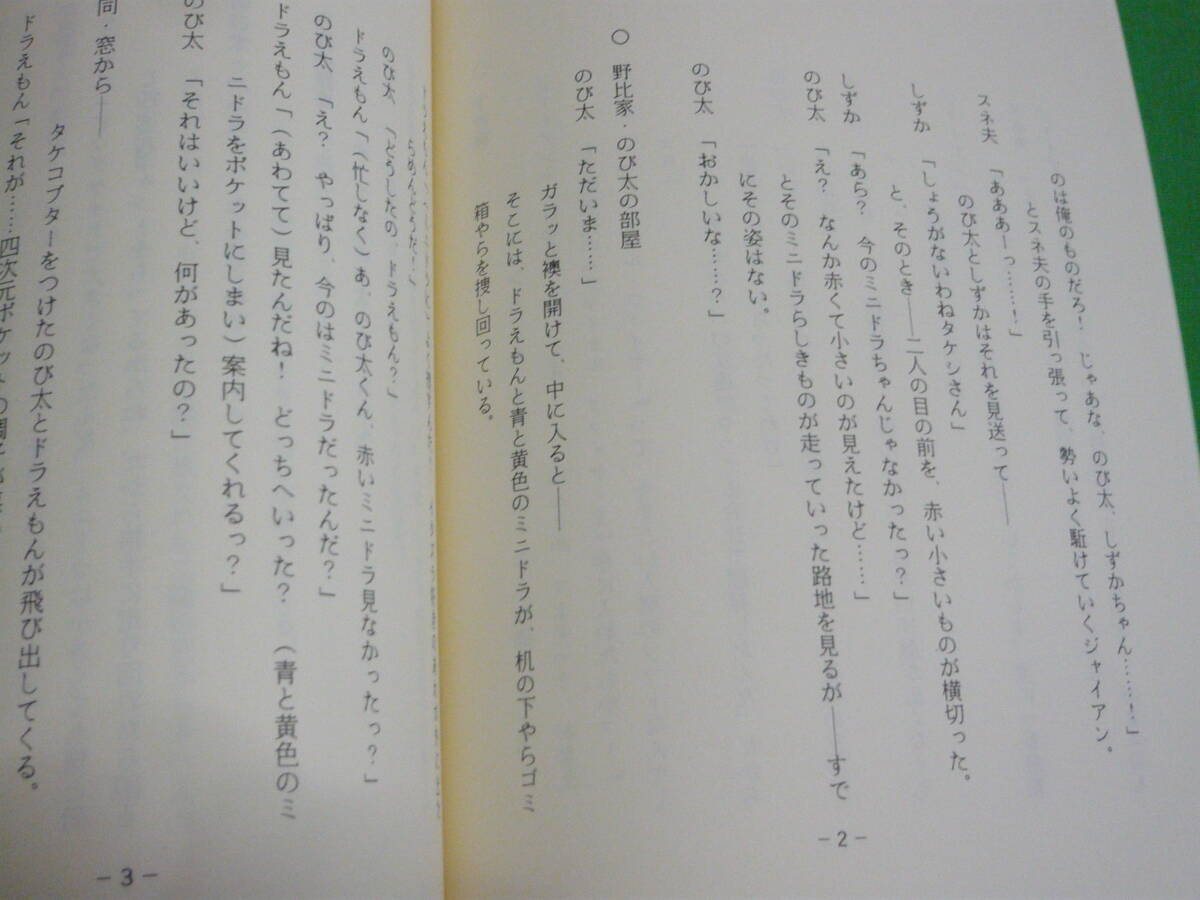 のは俺のものだろ！　じゃあな、のび太、しずかちゃん……！」
とスネ夫の手を引っ張って、勢いよく駈けていくジャイアン。
スネ夫　「あああーっ……！」
のび太としずかはそれを見送って――
しずか　「しょうがないわねタケシさん」
と、そのとき――二人の目の前を、赤い小さいものが横切った。
しずか　「あら？　今のミニドラちゃんじゃなかったっ？」
のび太　「え？　なんか赤くて小さいのが見えたけど……」
とそのミニドラらしきものが走っていった路地を見るが――すで
にその姿はない。
のび太　「おかしいな……？」
○　野比家・のび太の部屋
のび太　「ただいま……」
ガラッと襖を開けて、中に入ると――
そこには、ドラえもんと青と黄色のミニドラが、机の下やらゴミ
箱やらを捜し回っている。
－２－
のび太　「どうしたの、ドラえもん？」
ドラえもん「（忙しなく）あ、のび太くん、赤いミニドラ見なかったっ？」
のび太　「え？　やっぱり、今のはミニドラだったんだ？」
ドラえもん「（あわてて）見たんだね！　どっちへいった？　（青と黄色のミ
ニドラをポケットにしまい）案内してくれるっ？」
のび太　「それはいいけど、何があったの？」
同・窓から――
タケコプターをつけたのび太とドラえもんが飛び出してくる。
ドラえもん「それが……四次元ポケットの調子が
－３－